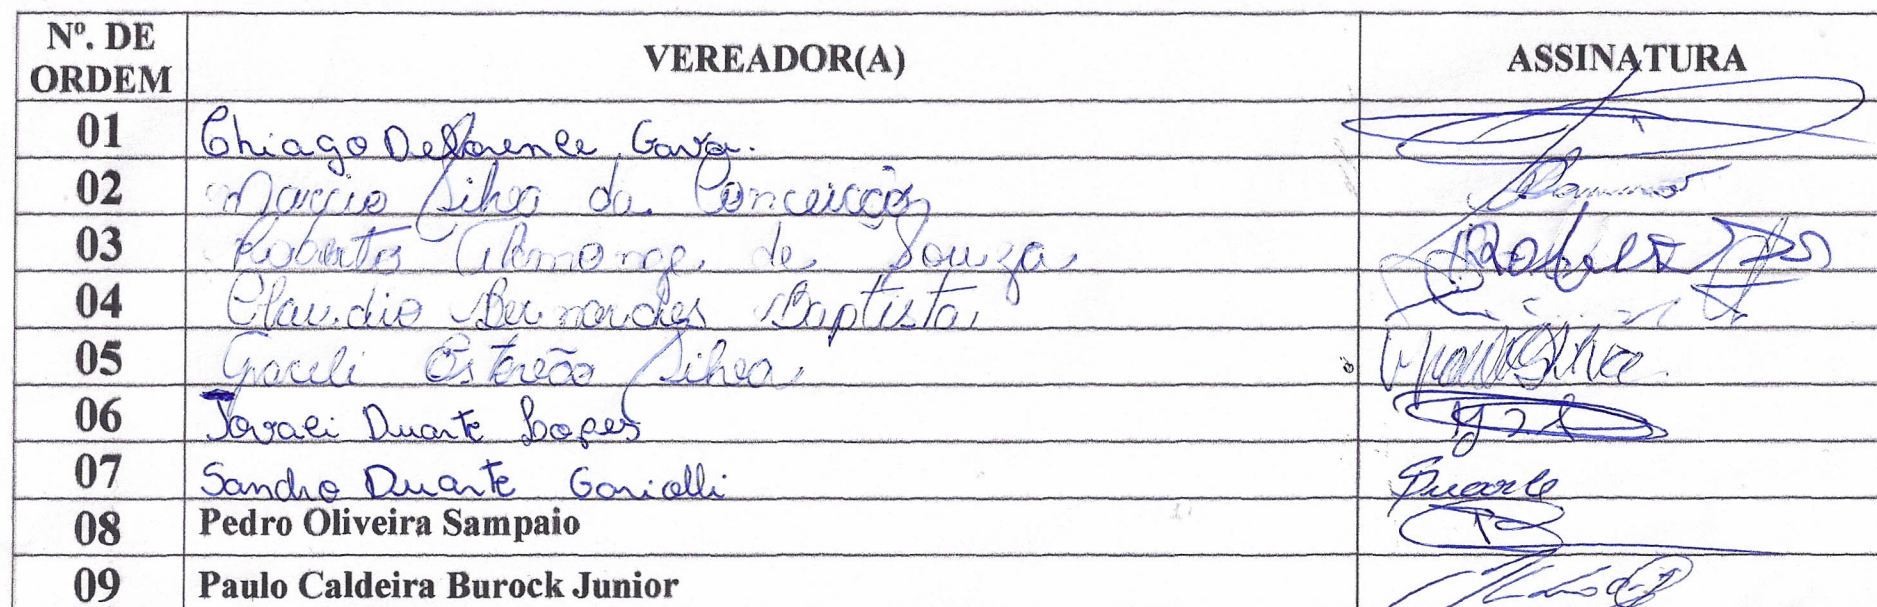 Nº. DE ORDEM VEREADOR(A) ASSINATURA
01 Thiago Deflorence Gava.
02 Marcio Silva da Conceição
03 Roberto Alemonge de Souza
04 Claudio Bernardes Baptista
05 Graceli Estevão Silva
06 Jovaci Duarte Lopes
07 Sandro Duarte Duarte
08 Pedro Oliveira Sampaio
09 Paulo Caldeira Burock Junior